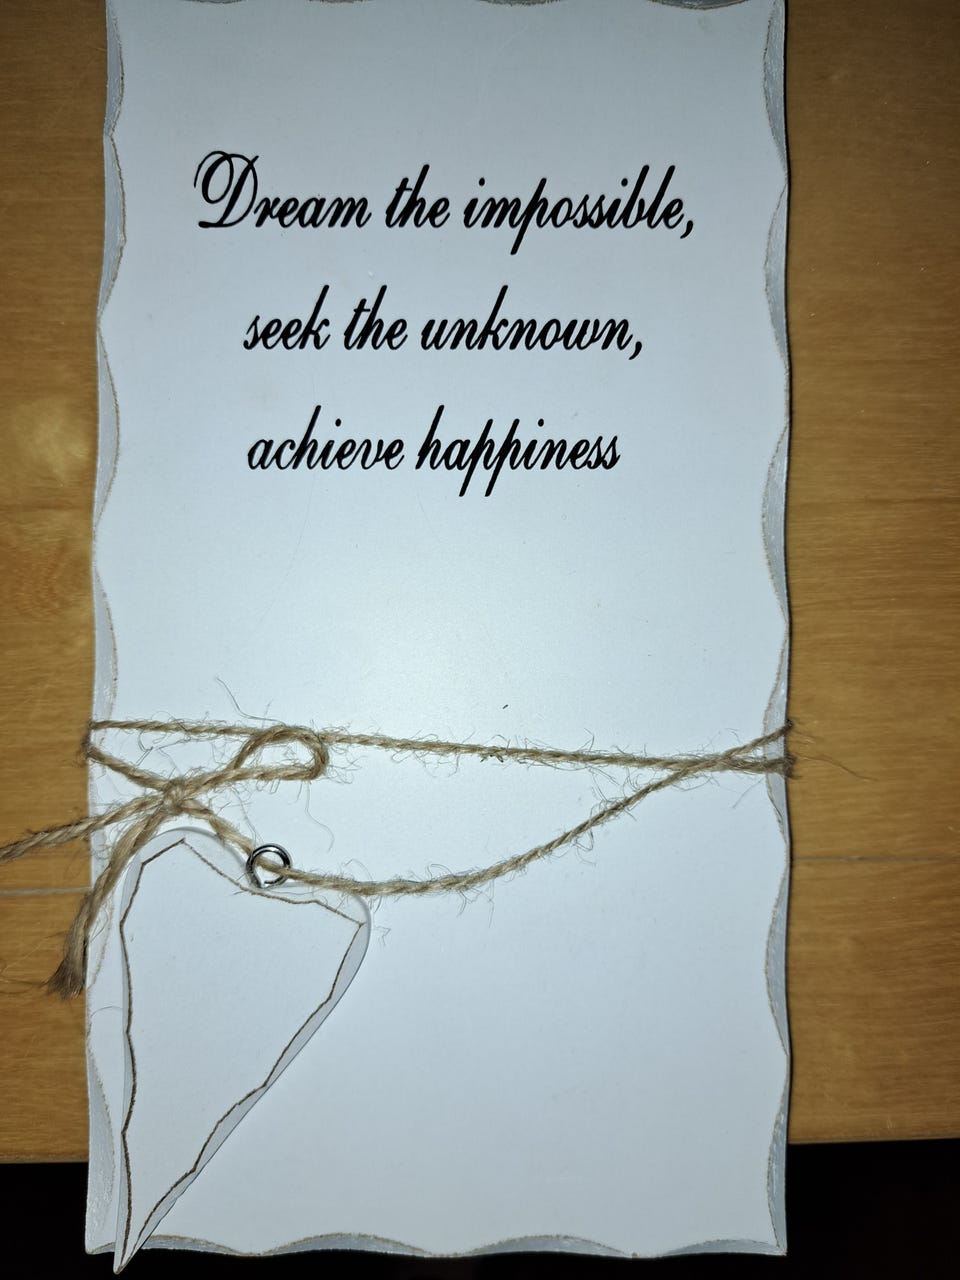 Dream the impossible,
seek the unknown,
achieve happiness